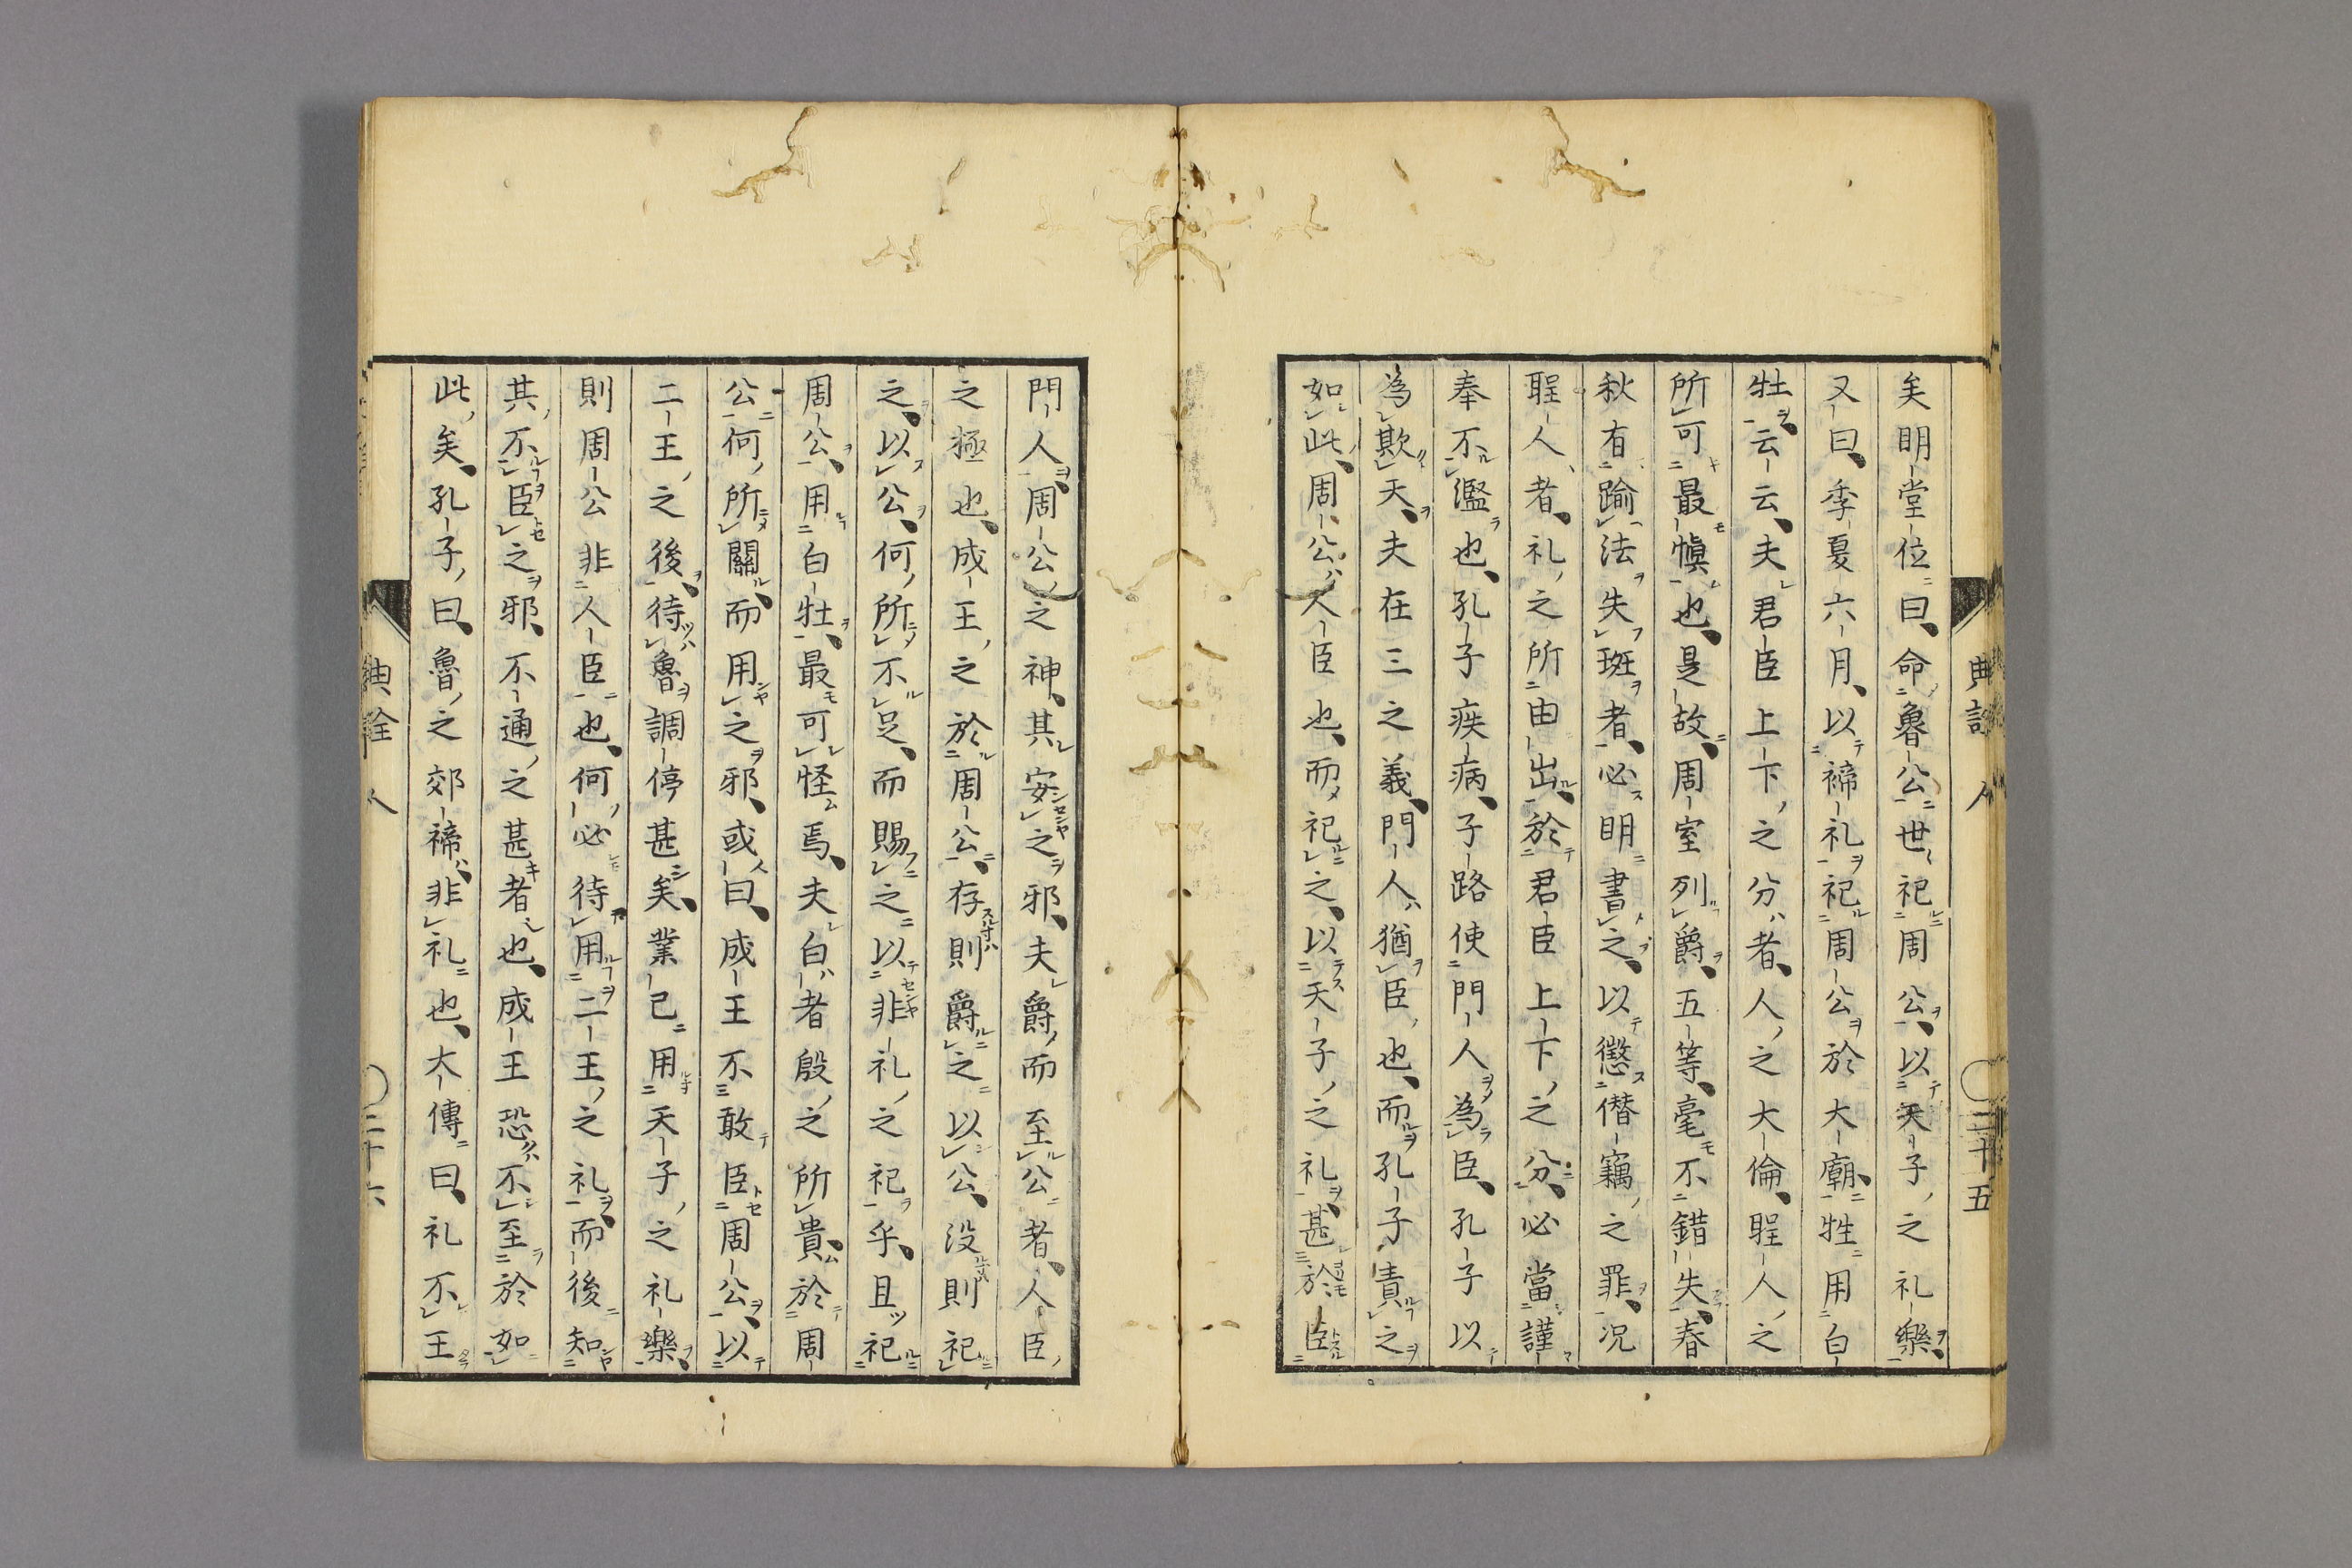 矣明堂位曰命魯公世祀周公以天子之礼樂
又曰季夏六月以禘礼祀周公於大廟牲用白
牡云云夫君臣上下之分者人之大倫聖人之
所可最慎也是故周室列爵五等毫不錯失春
秋有踰法失班者必明書之以懲僭竊之罪況
聖人者礼之所由出於君臣上下之分必當謹
奉不濫也孔子疾病子路使門人為臣孔子以
為欺天夫在三之義門人猶臣也而孔子責之
如此周公人臣也而祀之以天子之礼甚於臣
門人周公之神其安之邪夫爵而至公者人臣
之極也成王之於周公存則爵之以公没則祀
之以公何所不足而賜之以非礼之祀乎且祀
周公用白牡最可怪焉夫白者殷之所貴於周
公何所關而用之邪或曰成王不敢臣周公以
二王之後待魯調停甚矣業已用天子之礼樂
則周公非人臣也何必待用二王之礼而後知
其不臣之邪不通之甚者也成王恐不至於如
此矣孔子曰魯之郊禘非礼也大傳曰礼不王
典詮 人
二十五
典詮 人
二十六